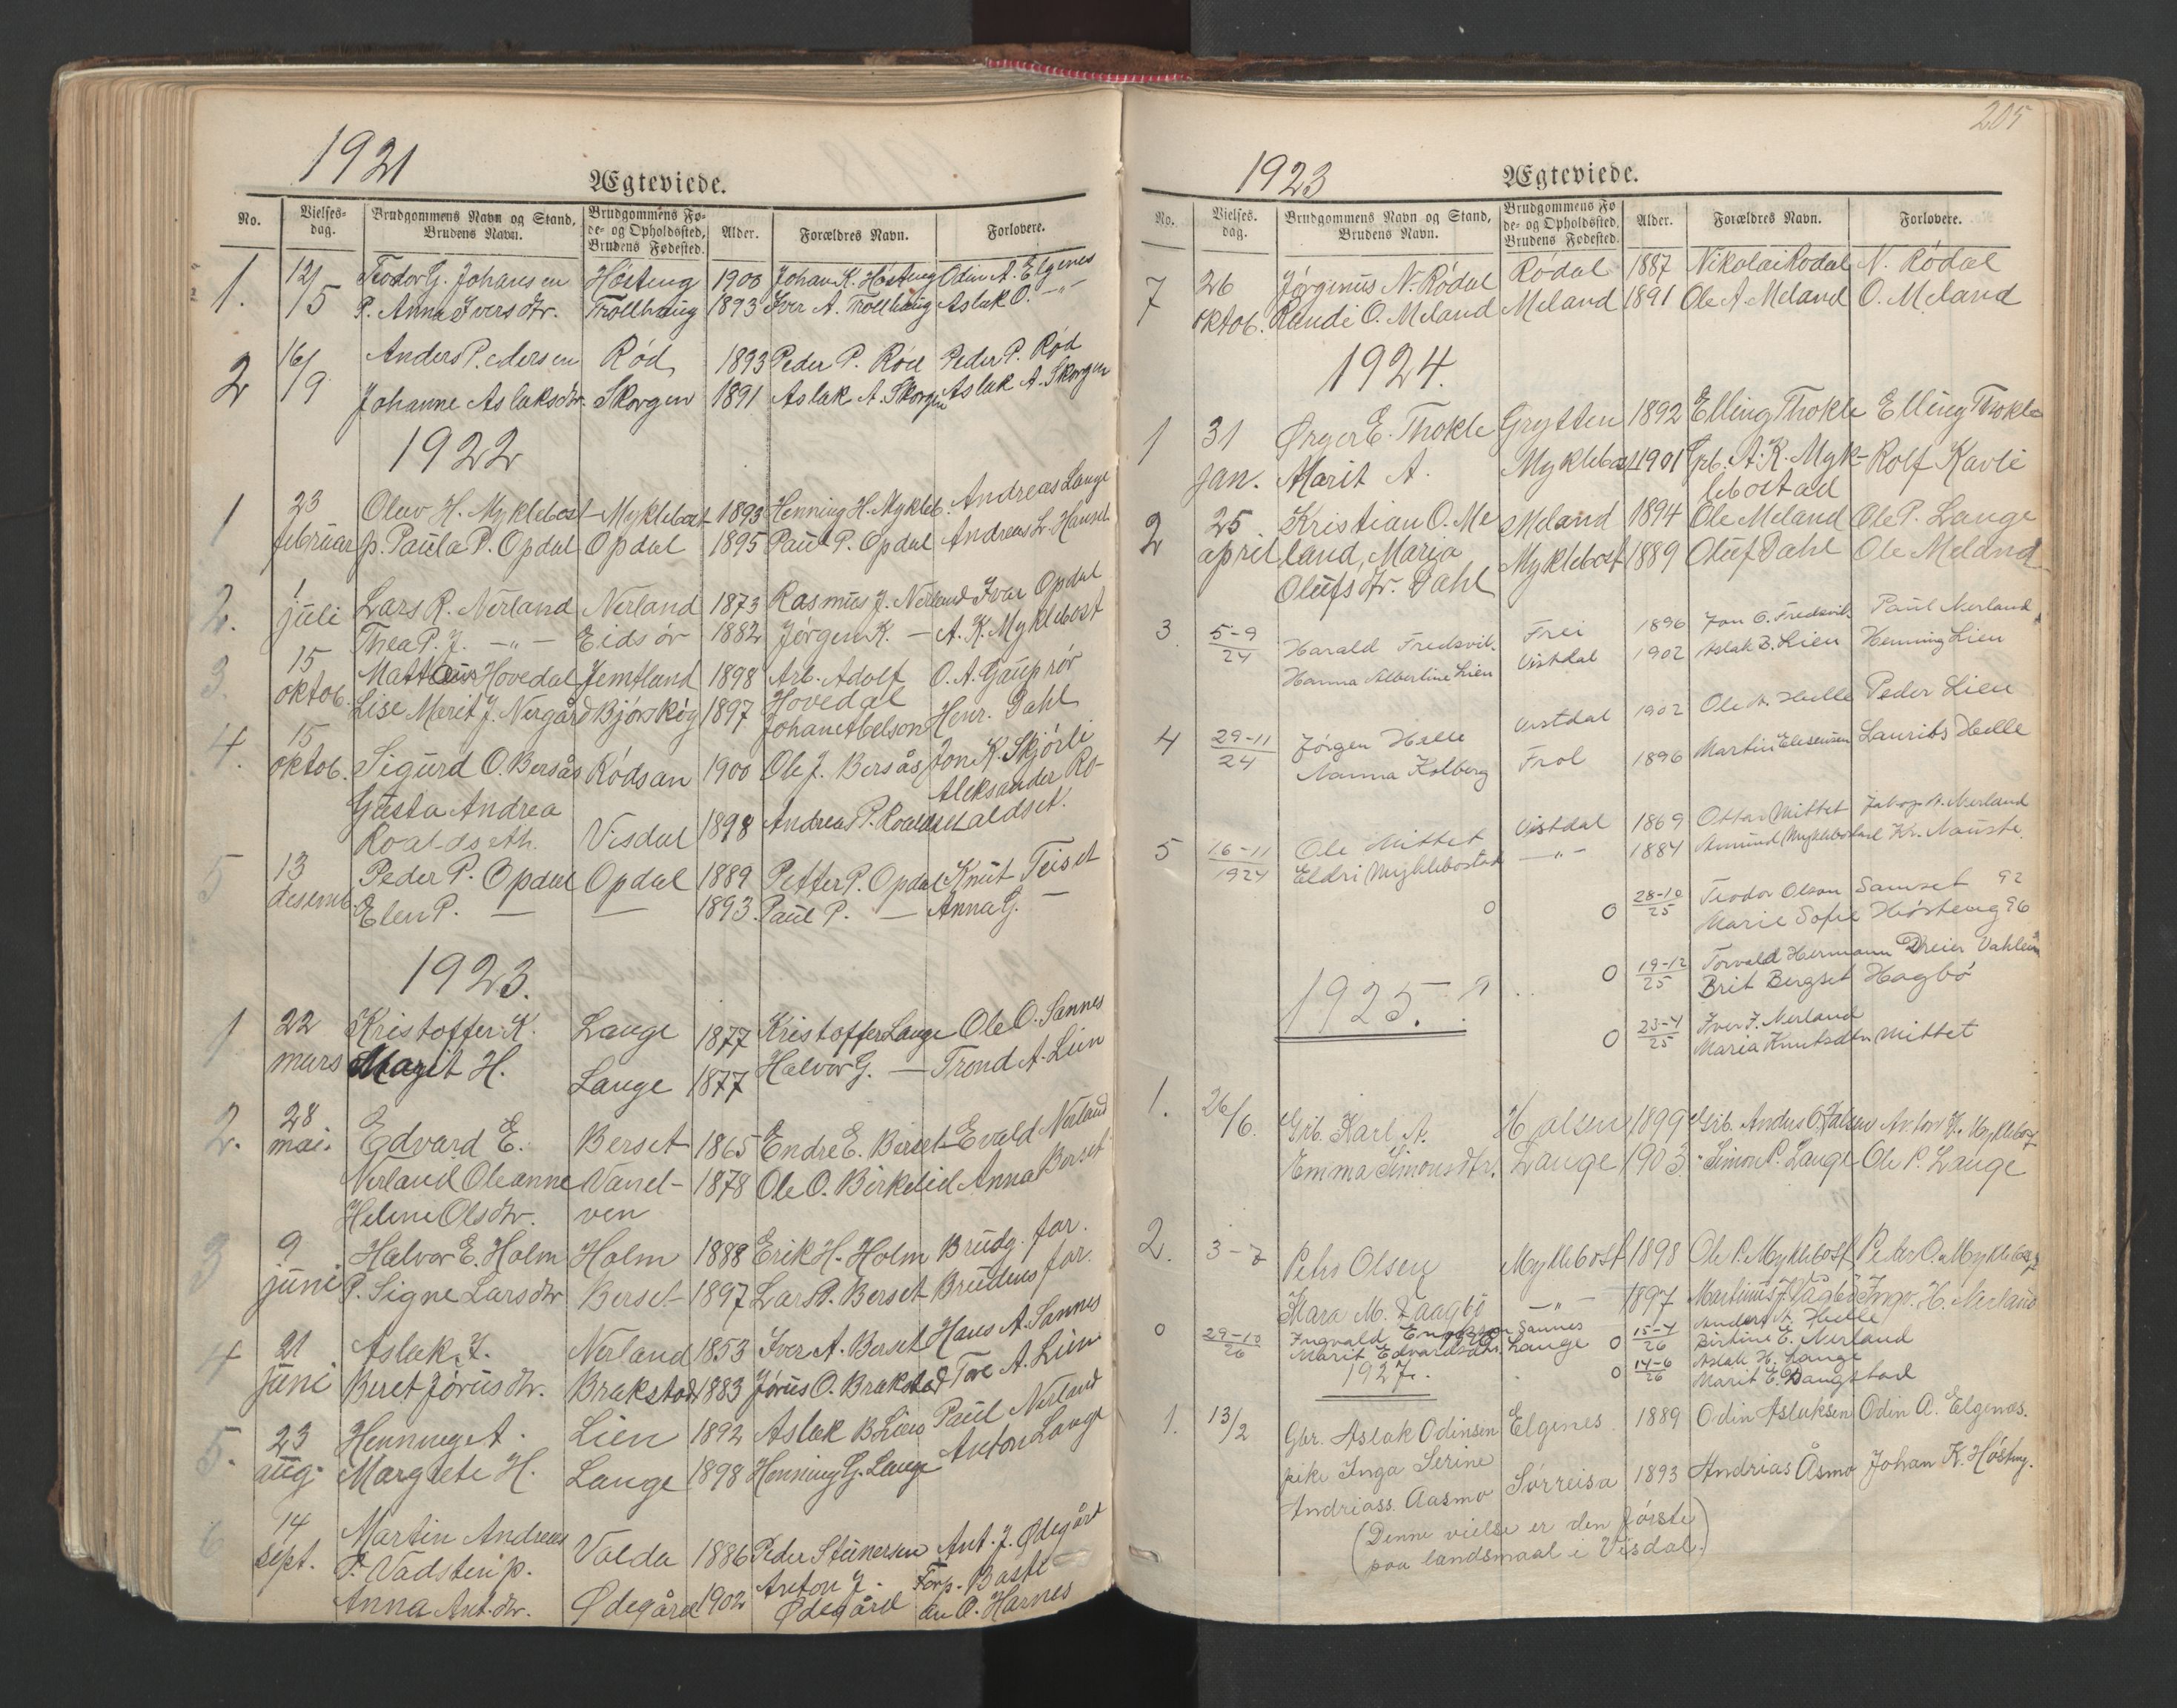 1921
Ægteviede.
No. Vielses-dag. Brudgommens Navn og Stand, Brudens Navn. Brudgommens Fø-de- og Opholdssted, Brudens Fødested. Alder. Forældres Navn. Forlovere.
1. 12/5 Teodor G. Johansen Høsteng 1900 Johan K. Høsteng Odin A. Elgenes
P. Anna Iversdtr. Trollhaug 1893 Iver A. Trollhaug Aslak O. -"-
2 16/9 Anders Pedersen Rød 1893 Peder P. Rød Peder P. Rød
Johanne Aslaksdtr. Skorgen 1891 Aslak A. Skorgen Aslak A. Skorgen
1922
1 23 februar Olav H. Myklebost Myklebost 1893 Henning H. Mykleb. Andreas Lange
p. Paula P. Opdal Opdal 1895 Paul P. Opdal Andreas L. Hansen
2. 1 juli Lars R. Nerland Nerland 1873 Rasmus J. Nerland Ivar Opdal
Thea P. J. -"- Eidsør 1882 Jørgen K. - A. K. Myklebost
3. 15 oktob. Matteus Hovedal Jemtland 1898 Arb. Adolf Hovedal O. A. Gauprør
Lise Marit J. Nergård Bjørskog 1897 Johan Abelson Henr. Dahl
4. 15 oktob. Sigurd O. Bersås Rødsan 1900 Ole J. Bersås Jon K. Skjørli
Gusta Andrea Roaldseth. Visdal 1898 Andreas P. Roaldset Aleksander Roaldset.
5 13 desemb. Peder P. Opdal Opdal 1889 Petter P. Opdal Knut Teiset
Elen P. — — 1893 Paul P. — Anna G. —
1923.
1 22 mars Kristoffer K. Lange 1877 Kristoffer Lange Ole O. Sannes
Magit H. Lange 1877 Halvor G. — Trond A. Lien
2. 28 mai. Edvard E. Berset 1865 Endre E. Berset Evald Nerland
Nerland Oleanne Vanel- 1878 Ole O. Birkelid Anna Berset
Heline Olsdtr. ven
3 9 juni Halvor E. Holm Holm 1888 Erik H. Holm Brudg. far.
P. Signe Larsdtr Berset 1897 Lars P. Berset Brudens far.
4 21 juni Aslak I. Nerland 1853 Iver A. Berset Hans A. Sannes
Beret Jørusdtr. Brakstad 1883 Jørus O. Brakstad Tore A. Lien
5. 23 aug. Henning A. Lien 1892 Aslak B Lien Paul Nerland
Margrete H. Lange 1898 Henning G. Lange Anton Lange
6 14 sept. Martin Andreas Valda 1886 Peder Steinersen Ant. J. Ødegård
P. Vadstein p.
Anna Ant.dtr. Ødegård 1902 Anton J. Ødegård Forp. Basti-an O. Harnes
205
1923
Ægteviede.
No. Vielses-dag. Brudgommens Navn og Stand, Brudens Navn. Brudgommens Fø de- og Opholdssted, Brudens Fødested. Alder. Forældres Navn. Forlovere.
7 26 oktob. Jørginus N. Rødal Rødal 1887 Nikolai Rødal N. Rødal
Randi O. Meland Meland 1891 Ole A. Meland O. Meland
1924.
1 31 jan. Ørger E. Thokle Grytten 1892 Elling Thokle Elling Thokle
Marit A. Myklebost 1901 Grb. A. K. Myk-lebostad Rolf Kavli
2 25 april Kristian O. Me Meland 1894 Ole Meland Ole P. Lange
land, Maria Myklebost 1889 Oluf Dahl Ole Meland
Olufsdtr. Dahl
3. 5-9 24 Harald Fredsvik. Frei 1896 Jon O. Fredsvik. Paul Nerland
Hanna Albertine Lien Vistdal 1902 Aslak B. Lien Henning Lien
4 29-11 24 Jørgen Helle Vistdal 1902 Ole A. Helle Peder Lien
Nanna Kolberg Frol 1896 Martin Elisensen Laurits Helle
5 16-11 1924 Ole Mittet Vistdal 1869 Ottar Mittet Jakop A. Nerland
Eldri Myklebostad -"- 1884 Amund Myklebostad Kr. Nauste.
0 0 28-10 25 Teodor Olson Samset 92
Marie Sofie Høsteng 96
0 19-12 25 Torvald Hermann Dreier Vahlein
Brit Bergset Hagbø
1925.
0 23-4 25 Iver J. Nerland
Maria Knutsdtr Mittet
1. 26/6. Grb. Karl A. Hjalsen 1899 Grb. Anders O. Anton K. Myklebost
Emma Simonsdtr. Lange 1903 " Simon P. Lange Ole P. Lange
2. 3-7 Petro Olsen Myklebost 1898 Ole P. Myklebost Peter O. Myklebost
Kara M. Vaagbø -"- 1897 Martinus J. Vågbø Ingv. H. Nerland
0 29-10 26 Ingvald Engelson Sannes 0 15-4 26 Anders A. Helle
Marit Edvardsdtr. Lange Birtine E. Nerland
1927. 0 14-6 26 Aslak H. Lange
Marit E. Bangstad
1. 13/2 Gbr. Aslak Odinsen Elgenes. 1889 Odin Aslaksen Odin A. Elgenæs.
pike Inga Serine Sørreisa 1893 Andrias Åsmo Johan K. Høsteng.
Andriass. Aasmo
(Denne vielse er den første
paa landsmaal i Visdal.)